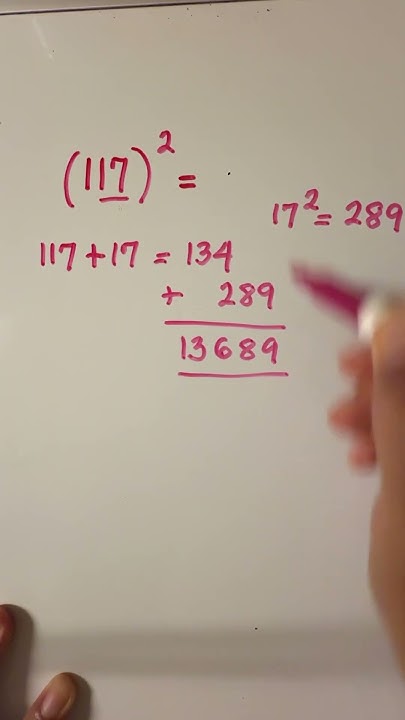 (117)² =
17² = 289
117 + 17 = 134
+ 289
13689